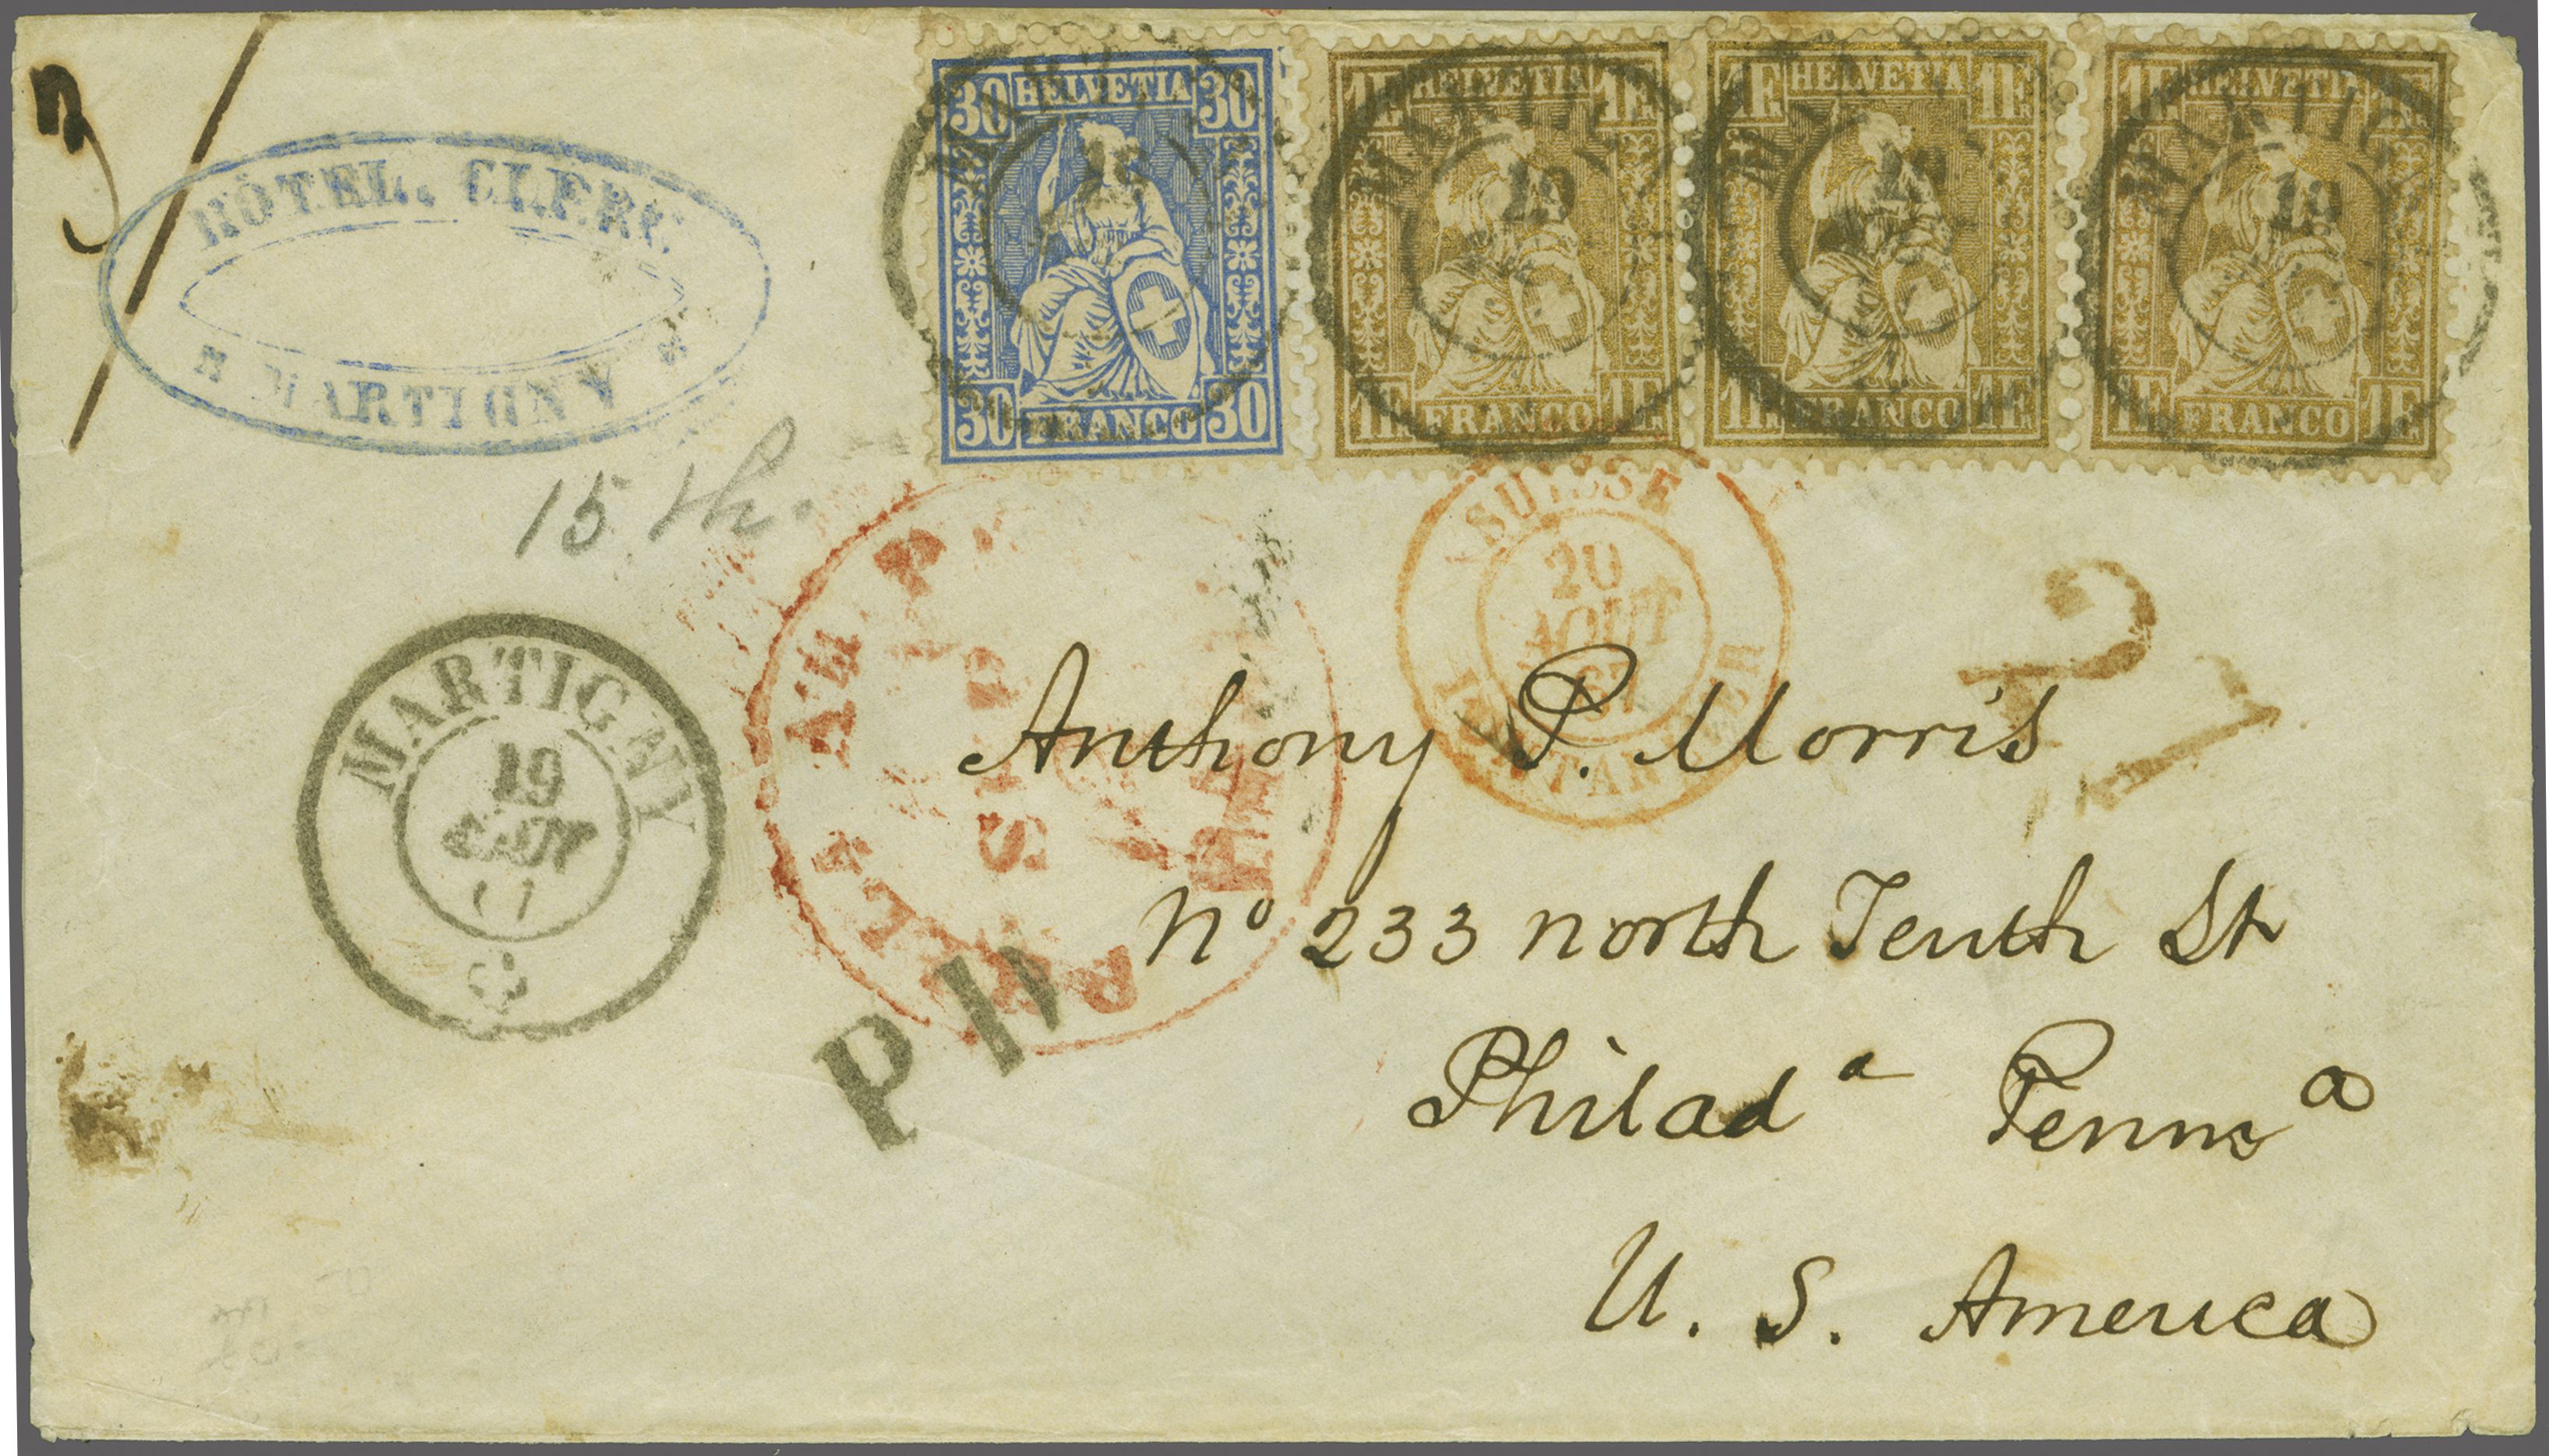 3
HOTEL CLERC
MARTIGNY
30 HELVETIA 30
30 FRANCO 30
1F HELVETIA 1F
1F FRANCO 1F
1F HELVETIA 1F
1F FRANCO 1F
1F HELVETIA 1F
1F FRANCO 1F
15 th.
SUISSE
20
AOUT
MARTIGNY
19
PD
Anthony P. Morris
No 233 north Tenth St
Philada Penna
U. S. America